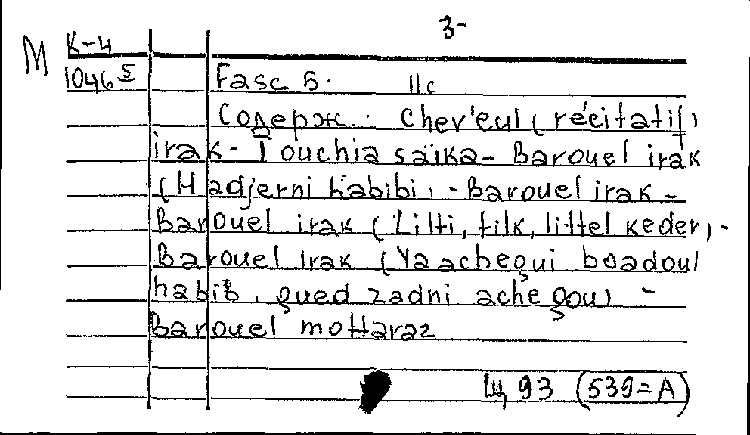 3-
M K-4
1046 5
Fasc 5. 11c
Содерж.: Chev'eul (récitatif)
irak - Touchia saïka - Barouel irak
(Hadjerni habibi) - Barouel irak -
Barouel irak (Lilti, tilk, littel keder) -
Barouel irak (Yaachequi boadoul
habib, qued zadni achegou) -
Barouel mottaraz
Щ 93 (539=A)